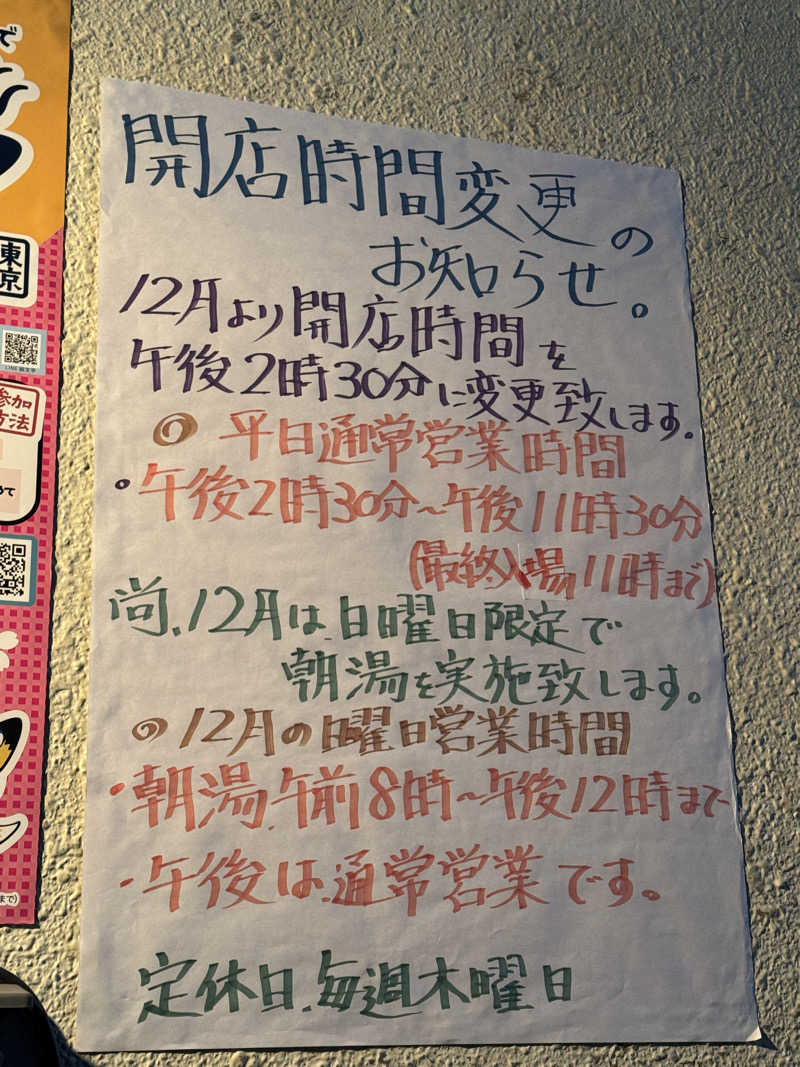 開店時間変更の
お知らせ。
12月より開店時間を
午後2時30分に変更致します。
◎ 平日通常営業時間
・午後2時30分〜午後11時30分
(最終入場11時まで)
尚、12月は、日曜日限定で
朝湯を実施致します。
◎12月の日曜日営業時間
・朝湯、午前8時〜午後12時まで
・午後は、通常営業です。
定休日、毎週木曜日
で
東京
参加
方法
めて
まで)